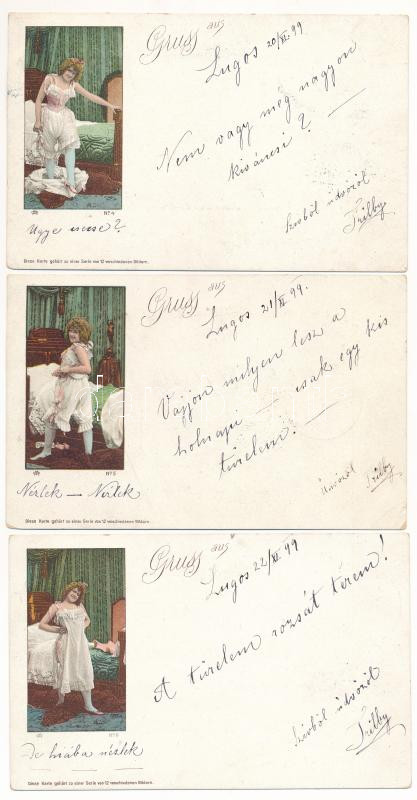 Gruss aus
Lugos 20/XI. 99
Nem vagy még nagyon
kiváncsi?
Szivből üdvözöl
Trilby
Nº 4
Ugye
Diese Karte gehört zu einer Serie von 12 verschiedenen Bildern.
Gruss aus
Lugos 21/XI 99.
Vajjon milyen lesz a
holnapi — csak egy kis
türelem! —
Üdvözöl Trilby
Nº 5
Nézlek — Nézlek
Diese Karte gehört zu einer Serie von 12 verschiedenen Bildern.
Gruss aus
Lugos 22/XI 99
A türelem rozsát terem!
Szivből üdvözöl
Trilby
Nº 6
De hiába nézlek
Diese Karte gehört zu einer Serie von 12 verschiedenen Bildern.